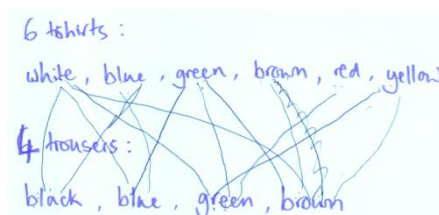 6 tshirts :
white , blue , green , brown , red , yellow
4 trousers :
black , blue , green , brown